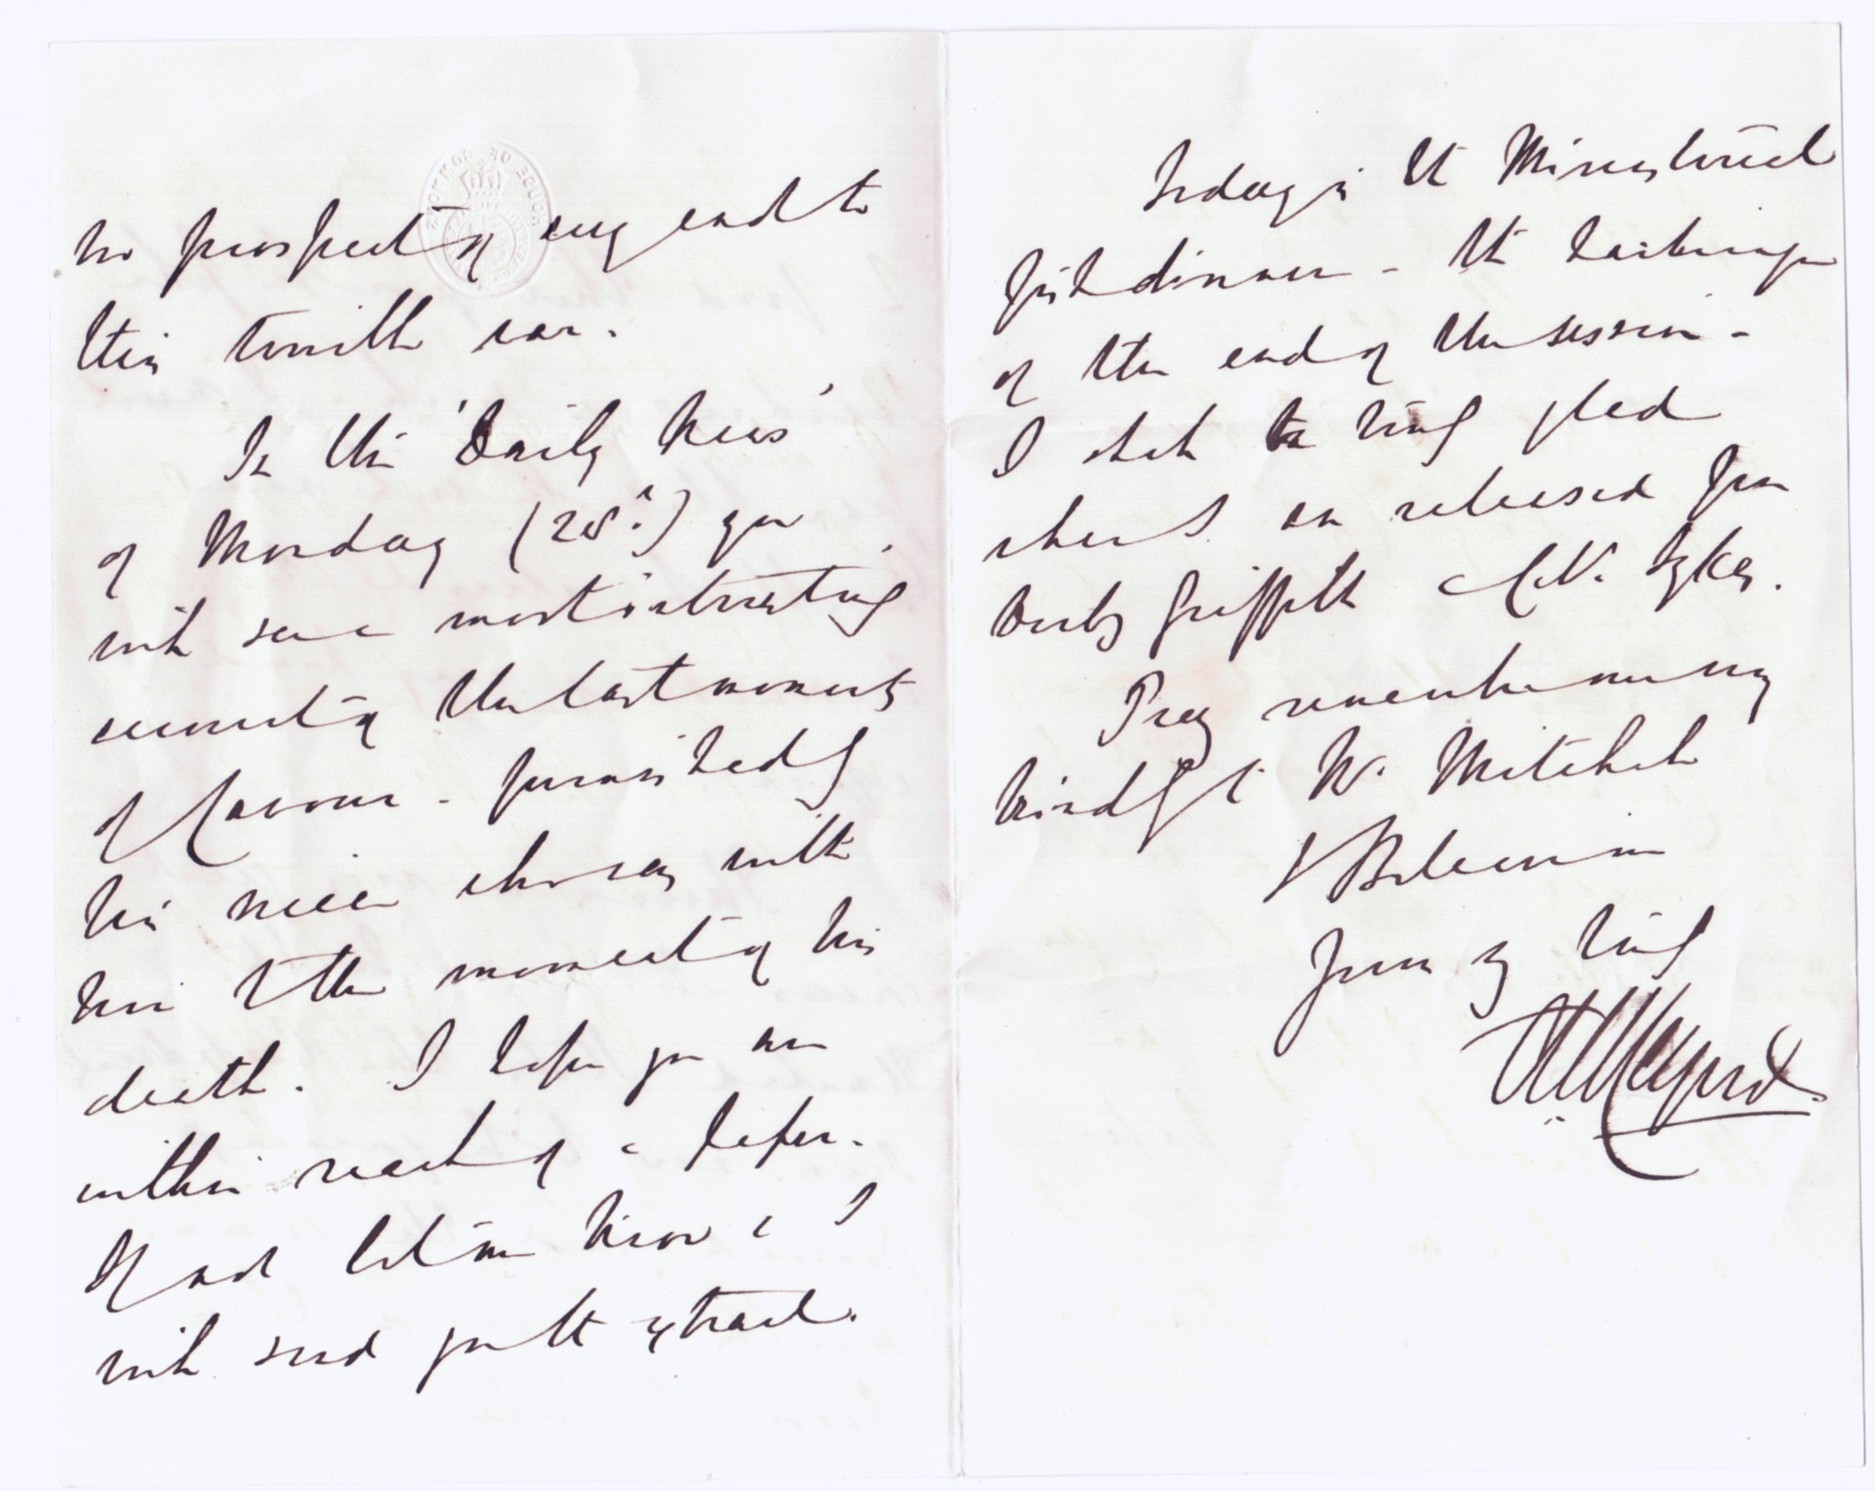 no prospect of any end to
this terrible war.
In the 'Daily News'
of Monday (28th) you
will see a most interesting
account of the last moments
of Cavour - furnished by
his niece who was with
him to the moment of his
death. I hope you are
within reach of a paper.
If not let me know & I
will send you the extract.
HOUSE OF COMMONS
Today is the Ministerial
fish dinner - the harbinger
of the end of the session -
I shall be truly glad
when I am released from
Darby Griffith & Col. Sykes.
Pray remember me very
kindly to W. Mitchell
& Believe me
Yours very truly
AHLayard